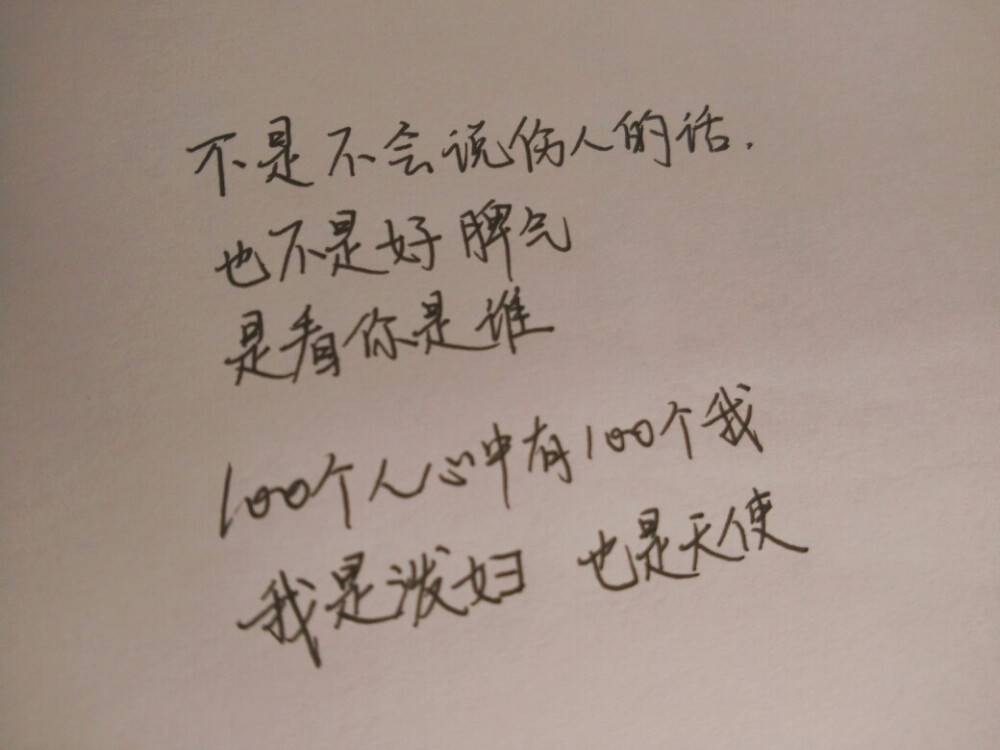 不是不会说伤人的话.
也不是好脾气
是看你是谁
100个人心中有100个我
我是泼妇 也是天使